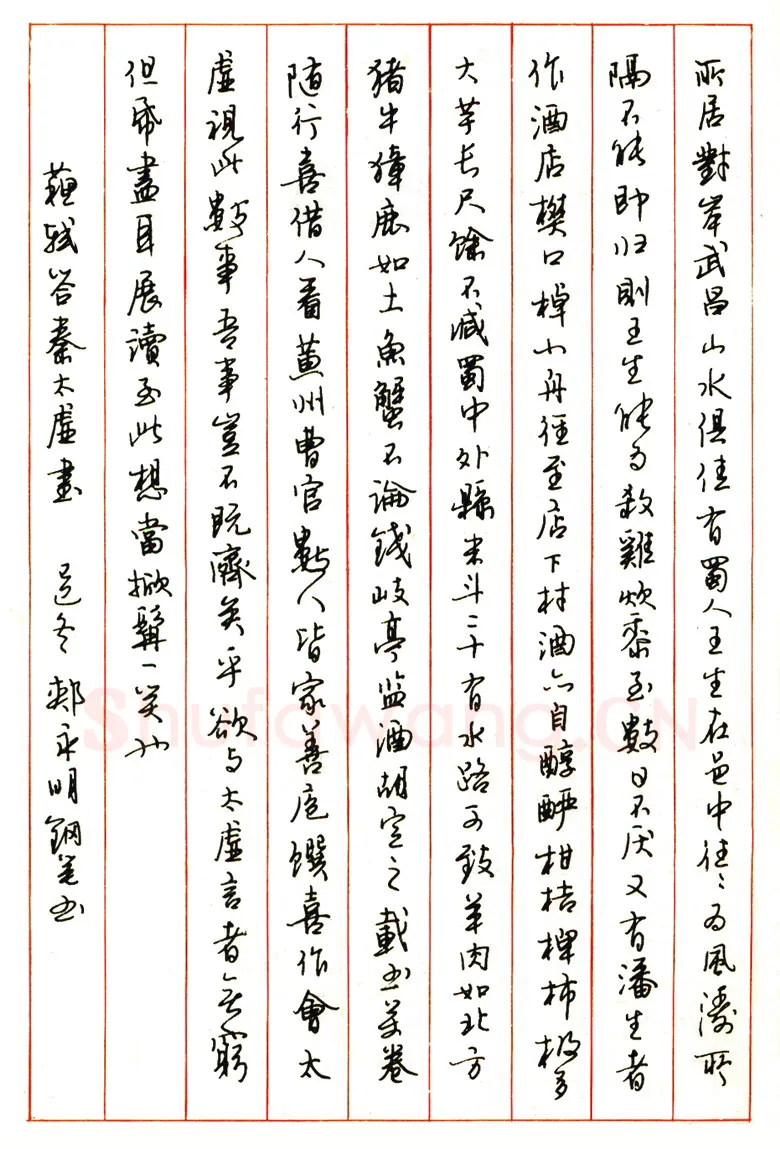 所居對岸武昌山水俱佳有蜀人王生在邑中往〻为風濤所
隔不能即归則王生能为殺雞炊黍至數日不厌又有潘生者
作酒店樊口棹小舟徑至店下村酒亦自醇酽柑桔椑柿極多
大芋长尺馀不减蜀中外縣米斗二十有水路可致羊肉如北方
猪牛獐鹿如土魚蟹不論錢岐亭监酒胡定之載书万卷
随行喜借人看黄州曹官數人皆家善庖馔喜作會太
虚視此數事吾事豈不既濟矣乎欲与太虚言者无窮
但紙盡耳展讀至此想當掀髯一笑也
蘇轼答秦太虚書 郝永明鋼笔书
Shufawang.CN